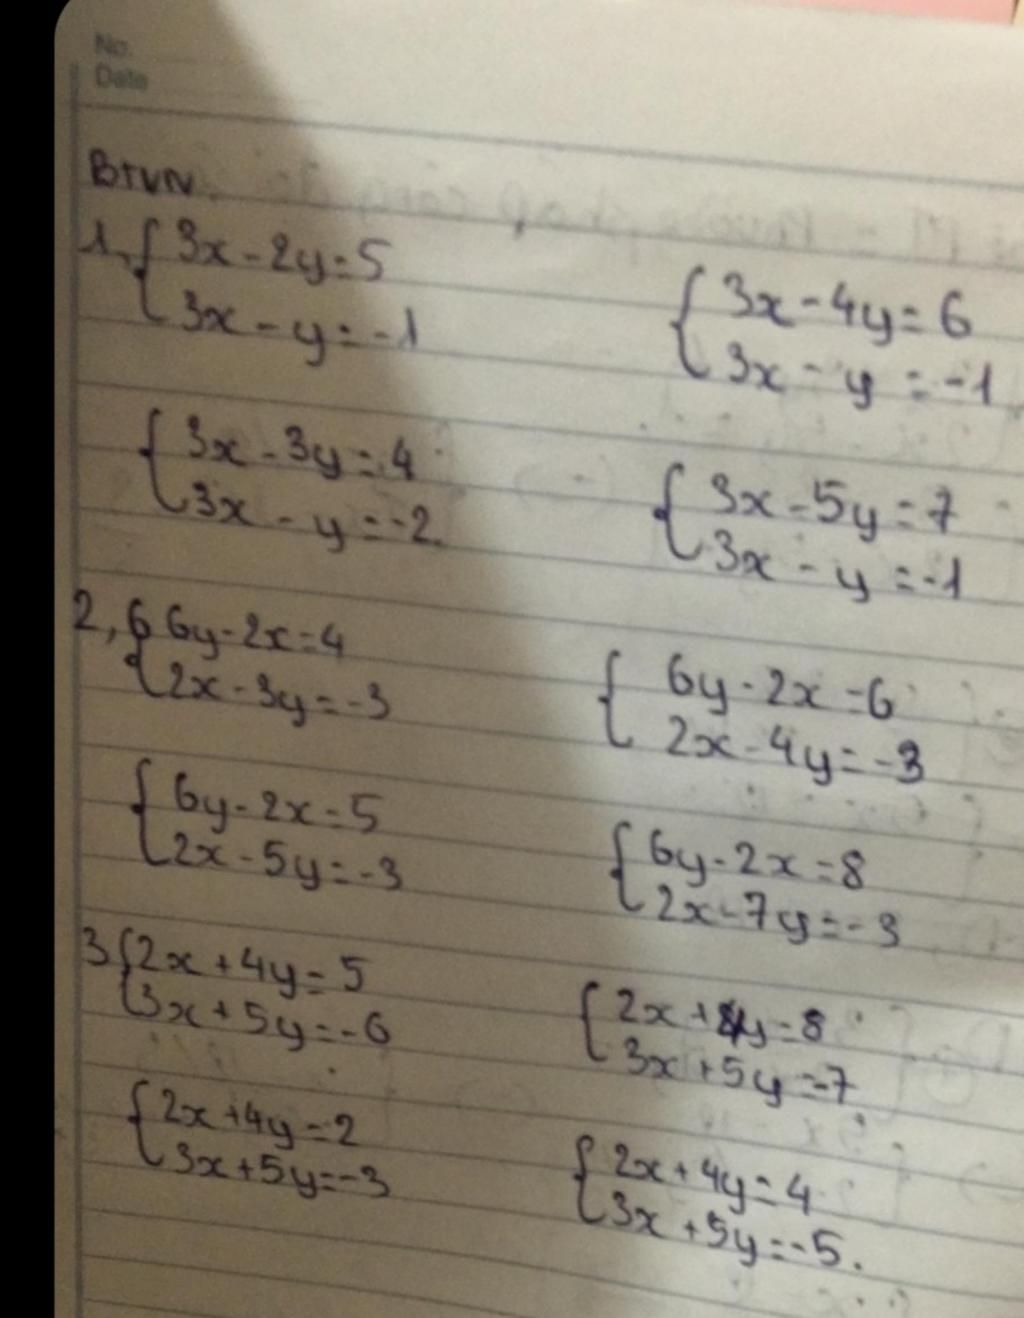 No.
Date
BTVN.
1, { 3x - 2y = 5
3x - y = -1
{ 3x - 4y = 6
3x - y = -1
{ 3x - 3y = 4
3x - y = -2
{ 3x - 5y = 7
3x - y = -1
2, { 6y - 2x = 4
2x - 3y = -3
{ 6y - 2x = 6
2x - 4y = -3
{ 6y - 2x = 5
2x - 5y = -3
{ 6y - 2x = 8
2x - 7y = -3
3 { 2x + 4y = 5
3x + 5y = -6
{ 2x + 4y = 8
3x + 5y = -7
{ 2x + 4y = 2
3x + 5y = -3
{ 2x + 4y = 4
3x + 5y = -5.